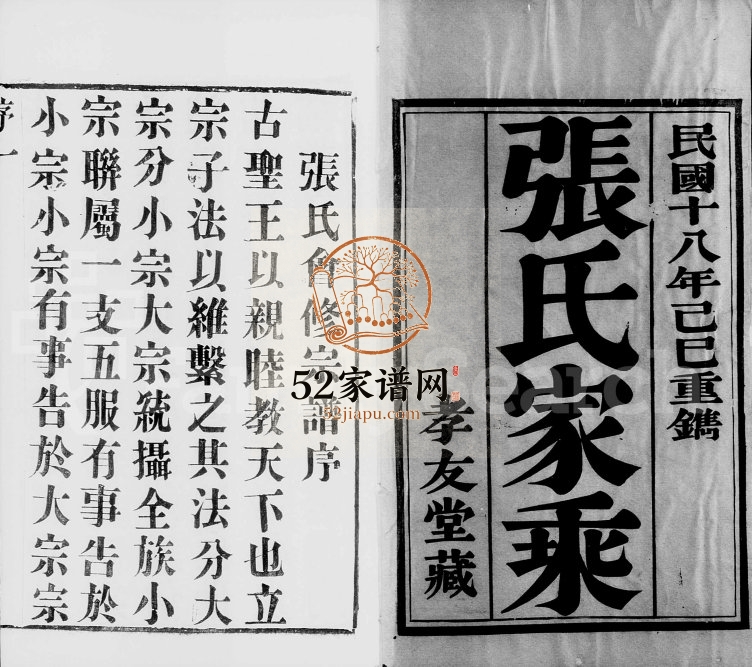 民國十八年己巳重鐫
張氏家乘
孝友堂藏
張氏會修宗譜序
古聖王以親睦教天下也立
宗子法以維繫之其法分大
宗分小宗大宗統攝全族小
宗聯屬一支五服有事告於
小宗小宗有事告於大宗宗
序一
52家谱网
52jiapu.com